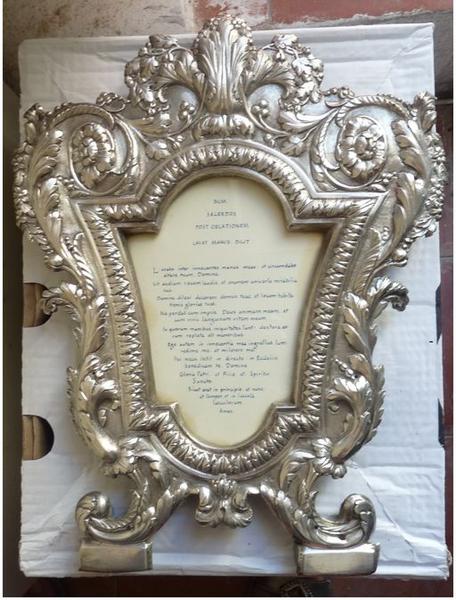 DUM
SACERDOS
POST OBLATIONEM
LAVAT MANUS DICIT
Lavabo inter innocentes manus meas: et circumdabo
altare tuum, Domine.
Ut audiam vocem laudis, et enarrem universa mirabilia
tua.
Domine, dilexi decorem domus tuae, et locum habita
tionis gloriae tuae.
Ne perdas cum impiis, Deus, animam meam, et
cum viris sanguinum vitam meam.
In quorum manibus iniquitates sunt: dextera eo
rum repleta est muneribus.
Ego autem in innocentia mea ingressus sum:
redime me, et miserere mei.
Pes meus stetit in directo: in Ecclesiis
benedicam te, Domine.
Gloria Patri, et Filio, et Spiritui
Sancto.
Sicut erat in principio, et nunc,
et semper, et in saecula
saeculorum.
Amen.